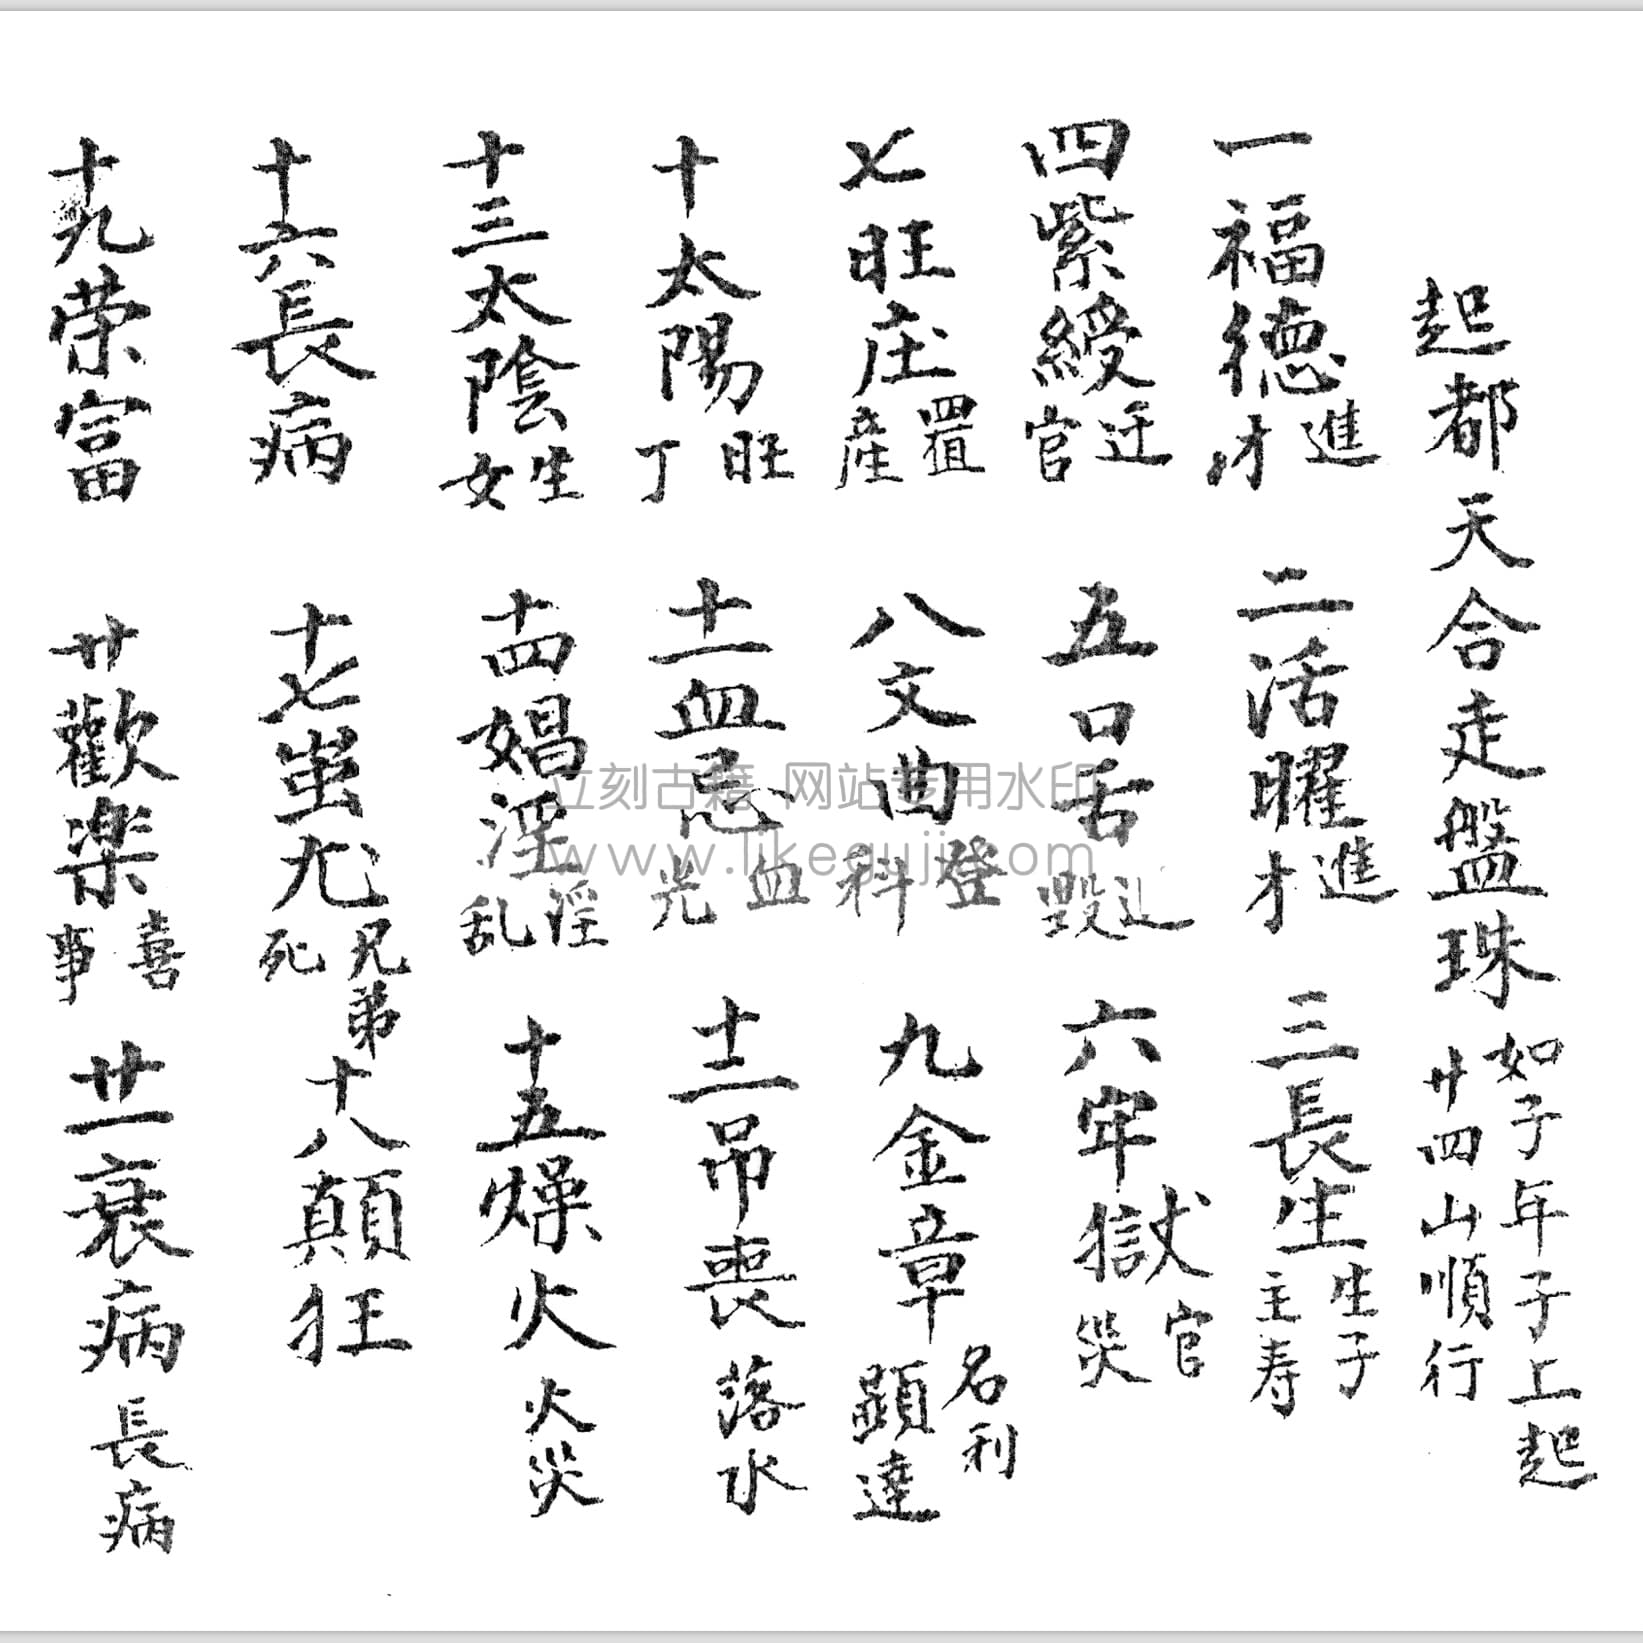 起都天合走盤珠 如子年子上起 廿四山順行
一福德 進才 二活曜 進才 三長生 生子 主寿
四紫綬 迁官 五口舌 毀 六牢獄 官災
七旺庄 置產 八文曲 登科 九金章 名利 顕達
十太陽 旺丁 十一血忌 血光 十二吊喪 落水
十三太陰 生女 十四娼淫 淫乱 十五燥火 火災
十六長病 十七蚩尤 兄弟死 十八顛狂
十九荣富 廿歡楽 喜事 廿一衰病 長病
立刻古籍 网站专用水印
www.likeguji.com